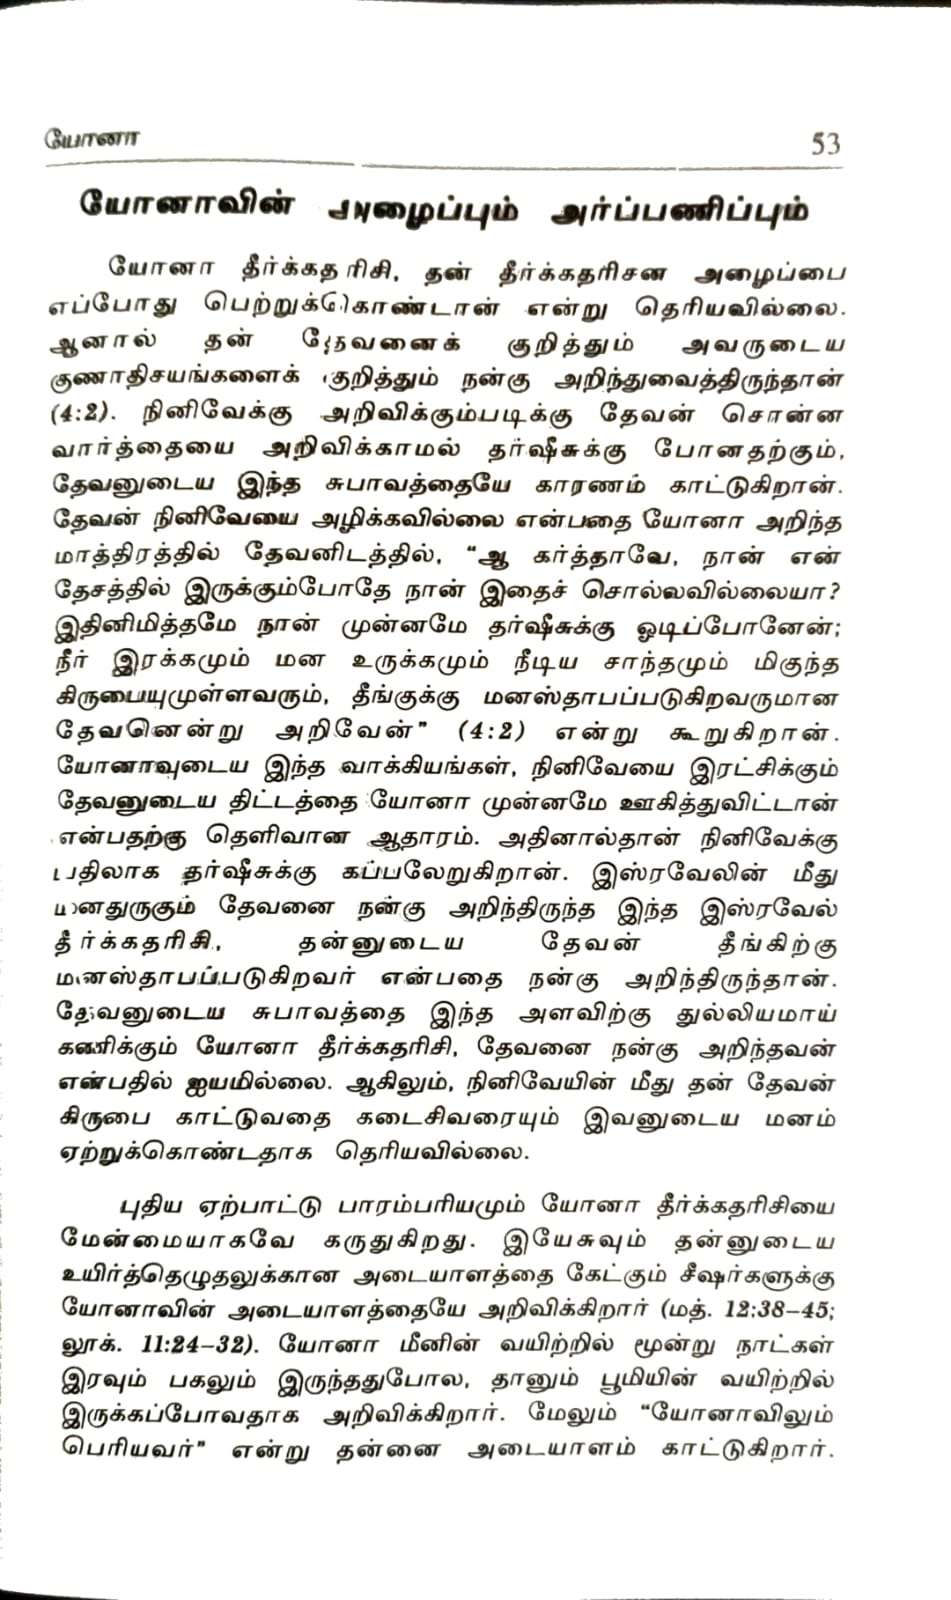 யோனா 53
யோனாவின் அழைப்பும் அர்ப்பணிப்பும்
யோனா தீர்க்கதரிசி, தன் தீர்க்கதரிசன அழைப்பை
எப்போது பெற்றுக்கொண்டான் என்று தெரியவில்லை.
ஆனால் தன் தேவனைக் குறித்தும் அவருடைய
குணாதிசயங்களைக் குறித்தும் நன்கு அறிந்துவைத்திருந்தான்
(4:2). நினிவேக்கு அறிவிக்கும்படிக்கு தேவன் சொன்ன
வார்த்தையை அறிவிக்காமல் தர்ஷீசுக்கு போனதற்கும்,
தேவனுடைய இந்த சுபாவத்தையே காரணம் காட்டுகிறான்.
தேவன் நினிவேயை அழிக்கவில்லை என்பதை யோனா அறிந்த
மாத்திரத்தில் தேவனிடத்தில், “ஆ கர்த்தாவே, நான் என்
தேசத்தில் இருக்கும்போதே நான் இதைச் சொல்லவில்லையா?
இதினிமித்தமே நான் முன்னமே தர்ஷீசுக்கு ஓடிப்போனேன்;
நீர் இரக்கமும் மன உருக்கமும் நீடிய சாந்தமும் மிகுந்த
கிருபையுமுள்ளவரும், தீங்குக்கு மனஸ்தாபப்படுகிறவருமான
தேவனென்று அறிவேன்” (4:2) என்று கூறுகிறான்.
யோனாவுடைய இந்த வாக்கியங்கள், நினிவேயை இரட்சிக்கும்
தேவனுடைய திட்டத்தை யோனா முன்னமே ஊகித்துவிட்டான்
என்பதற்கு தெளிவான ஆதாரம். அதினால்தான் நினிவேக்கு
பதிலாக தர்ஷீசுக்கு கப்பலேறுகிறான். இஸ்ரவேலின் மீது
மனதுருகும் தேவனை நன்கு அறிந்திருந்த இந்த இஸ்ரவேல்
தீர்க்கதரிசி, தன்னுடைய தேவன் தீங்கிற்கு
மனஸ்தாபப்படுகிறவர் என்பதை நன்கு அறிந்திருந்தான்.
தேவனுடைய சுபாவத்தை இந்த அளவிற்கு துல்லியமாய்
கணிக்கும் யோனா தீர்க்கதரிசி, தேவனை நன்கு அறிந்தவன்
என்பதில் ஐயமில்லை. ஆகிலும், நினிவேயின் மீது தன் தேவன்
கிருபை காட்டுவதை கடைசிவரையும் இவனுடைய மனம்
ஏற்றுக்கொண்டதாக தெரியவில்லை.
புதிய ஏற்பாட்டு பாரம்பரியமும் யோனா தீர்க்கதரிசியை
மேன்மையாகவே கருதுகிறது. இயேசுவும் தன்னுடைய
உயிர்த்தெழுதலுக்கான அடையாளத்தை கேட்கும் சீஷர்களுக்கு
யோனாவின் அடையாளத்தையே அறிவிக்கிறார் (மத். 12:38–45;
லூக். 11:24–32). யோனா மீனின் வயிற்றில் மூன்று நாட்கள்
இரவும் பகலும் இருந்ததுபோல, தானும் பூமியின் வயிற்றில்
இருக்கப்போவதாக அறிவிக்கிறார். மேலும் “யோனாவிலும்
பெரியவர்” என்று தன்னை அடையாளம் காட்டுகிறார்.